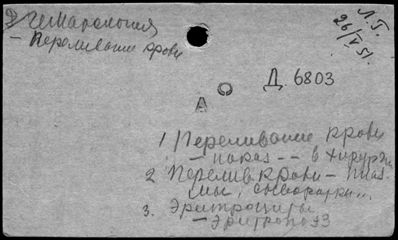 Гематология
- Переливание крови
Л. Г.
26/V 51.
Д. 6803
А О
1 Переливание крови
- показ -- в хирург
2 Перелив крови - плаз
мы, сыворотки...
3. Эритроциты
- Эритропоэз